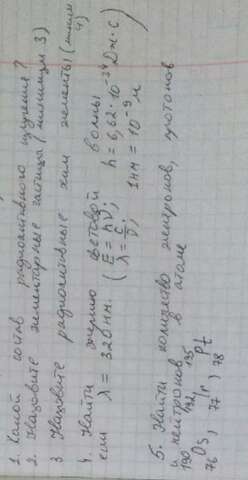 1. Какой состав радиоактивного излучения?
2. Назовите элементарные частицы (минимум 3)
3 Назовите радиоактивные хим элементы (миним 4)
4. Найти энергию световой волны
если λ = 320нм. (E = hν; h = 6,62·10⁻³⁴ Дж·с)
λ = c/ν; 1нм = 10⁻⁹ м
5. Найти количество электронов, протонов
и нейтронов в атоме
¹⁹⁰₇₆Os, ¹⁹²₇₇Ir, ¹⁹⁵₇₈Pt